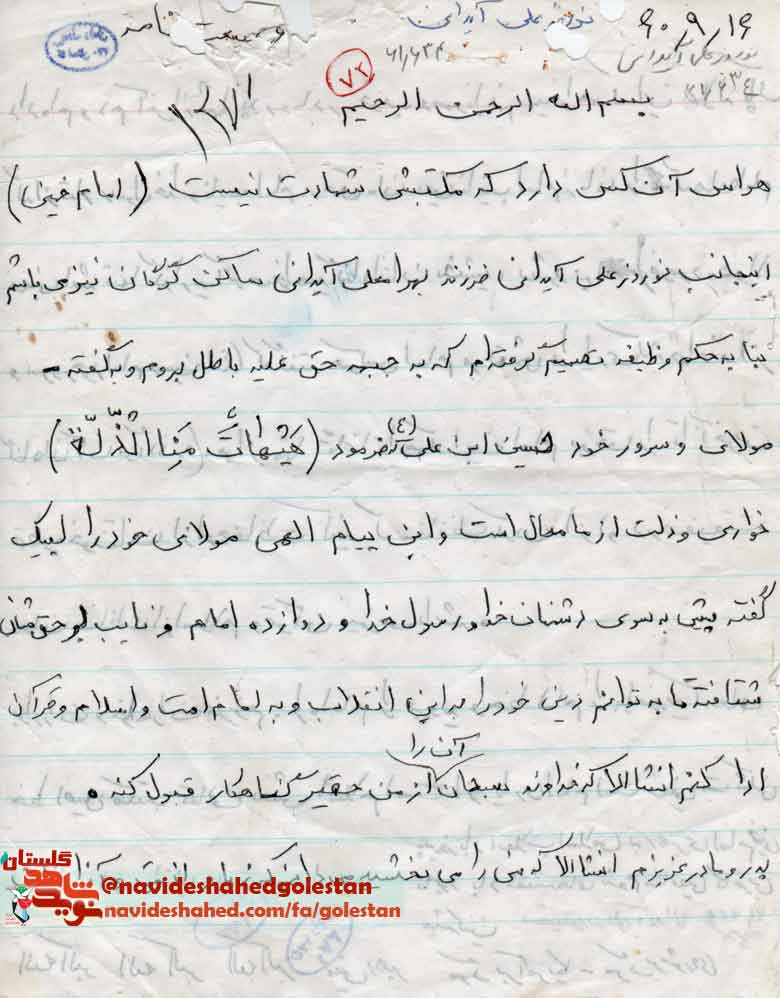 ۶۰,۹,۱۶ نوروز علی آیدانی وصیت نامه
نوروز علی آیدانی
۷۲
بسم الله الرحمن الرحیم
هراس آن کس دارد که مکتبش شهادت نیست (امام خمینی)
اینجانب نوروز علی آیدانی فرزند بهرامعلی آیدانی ساکن گرگان نیز می باشم
بنا به حکم وظیفه تصمیم گرفته ام که به جبهه حق علیه باطل بروم و به گفته -
مولای و سرور خود حسین ابن علی (ع) که فرمود (هَیْهَاتَ مِنَا الذِّلَّة)
خواری و ذلت از ما محال است و این پیام الهی مولای خود را لبیک
گفته پیش به سوی دشنان خدا و رسول خدا و دوازده امام و نایب بر حقشان
شتافته تا به توانم دین خود را به این انقلاب و به امام امت و اسلام و قرآن
ادا کنم انشالا که خداوند سبحان آن را از من حقیر گناهکار قبول کند .
پدر و مادر عزیزم انشالا که منی را می بخشید
گلستان
نوید شاهد
@navideshahedgolestan
navideshahed.com/fa/golestan